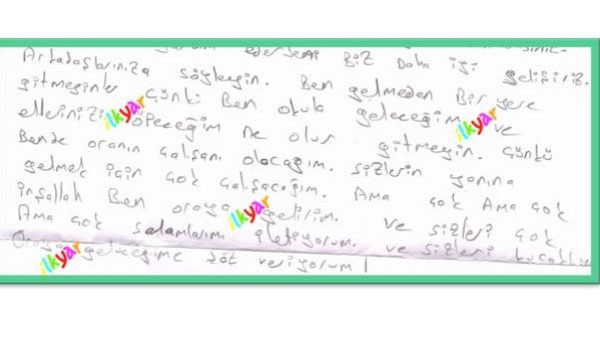 ederseniz Biz Daha iyi
Arkadaşlarınıza söyleyin. Ben gelişiriz.
gitmeyinler Çünkü Ben gelmeden Bir yere
ellerinizi öpeceğim okula geleceğim ve
Bende oranın ne olur gitmeyin. Çünkü
çalışanı olacağım. sizlerin yanına
gelmek için çok çalışacağım. Ama çok Ama çok
inşallah Ben oraya gelirim.
Ama çok selamlarımı iletiyorum. ve sizleri çok
Oraya geleceğime söt veriyorum ve sizleri
ilkyar
ilkyar
ilkyar
ilkyar